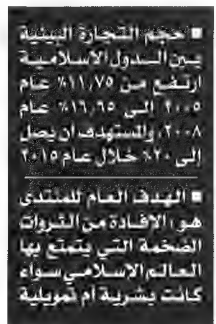 ■ حجم التجارة البينية
بين الدول الاسلامية
ارتفع من ١١,٧٥٪ عام
٢٠٠٥ الى ١٦,٦٥٪ عام
٢٠٠٨، والمستهدف ان يصل
إلى ٢٠٪ خلال عام ٢٠١٥
■ الهدف العام للمنتدى
هو: الافادة من الثروات
الضخمة التي يتمتع بها
العالم الاسلامي سواء
كانت بشرية أم تمويلية